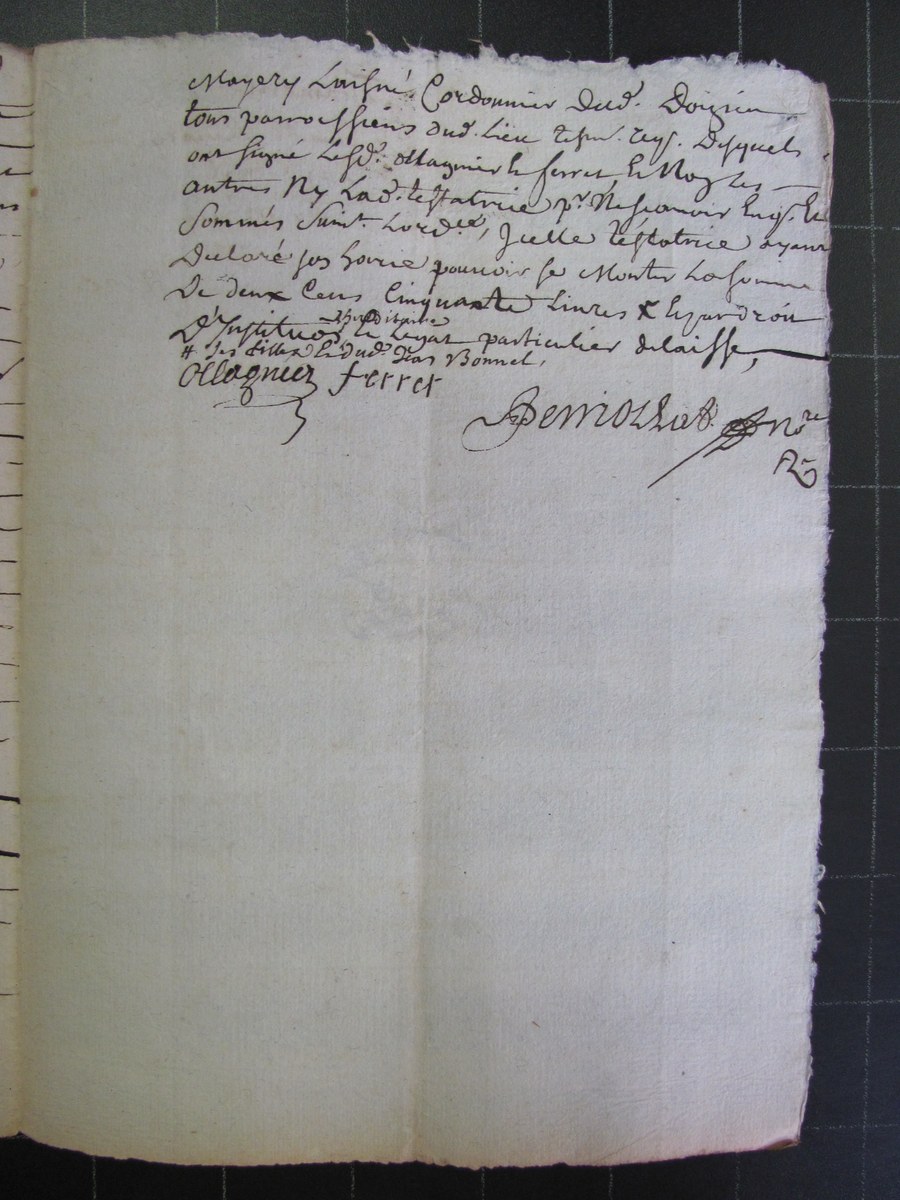 Mayery Laisné Cordonnier dud. Doizieu
tous parroissiens dud. Lieu tesm. reqs. Desquels
ont signé Lesd. ollagnier le ferret Et Non Les
autres Ny Lad. testatrice pr. Ne scavoir Enqs. Et
Sommés Suivt. Lordce, Jcelle testatrice ayant
Declaré son hoirie pouvoir se Monter La somme
De deux Cens Cinquante Livres x Esgardroit
D'Institu͏on hereditaire Et Legat particulier delaisse,
# ses filles Et dud. Jean Bonnel,
Ollagnier ferret
nore
R